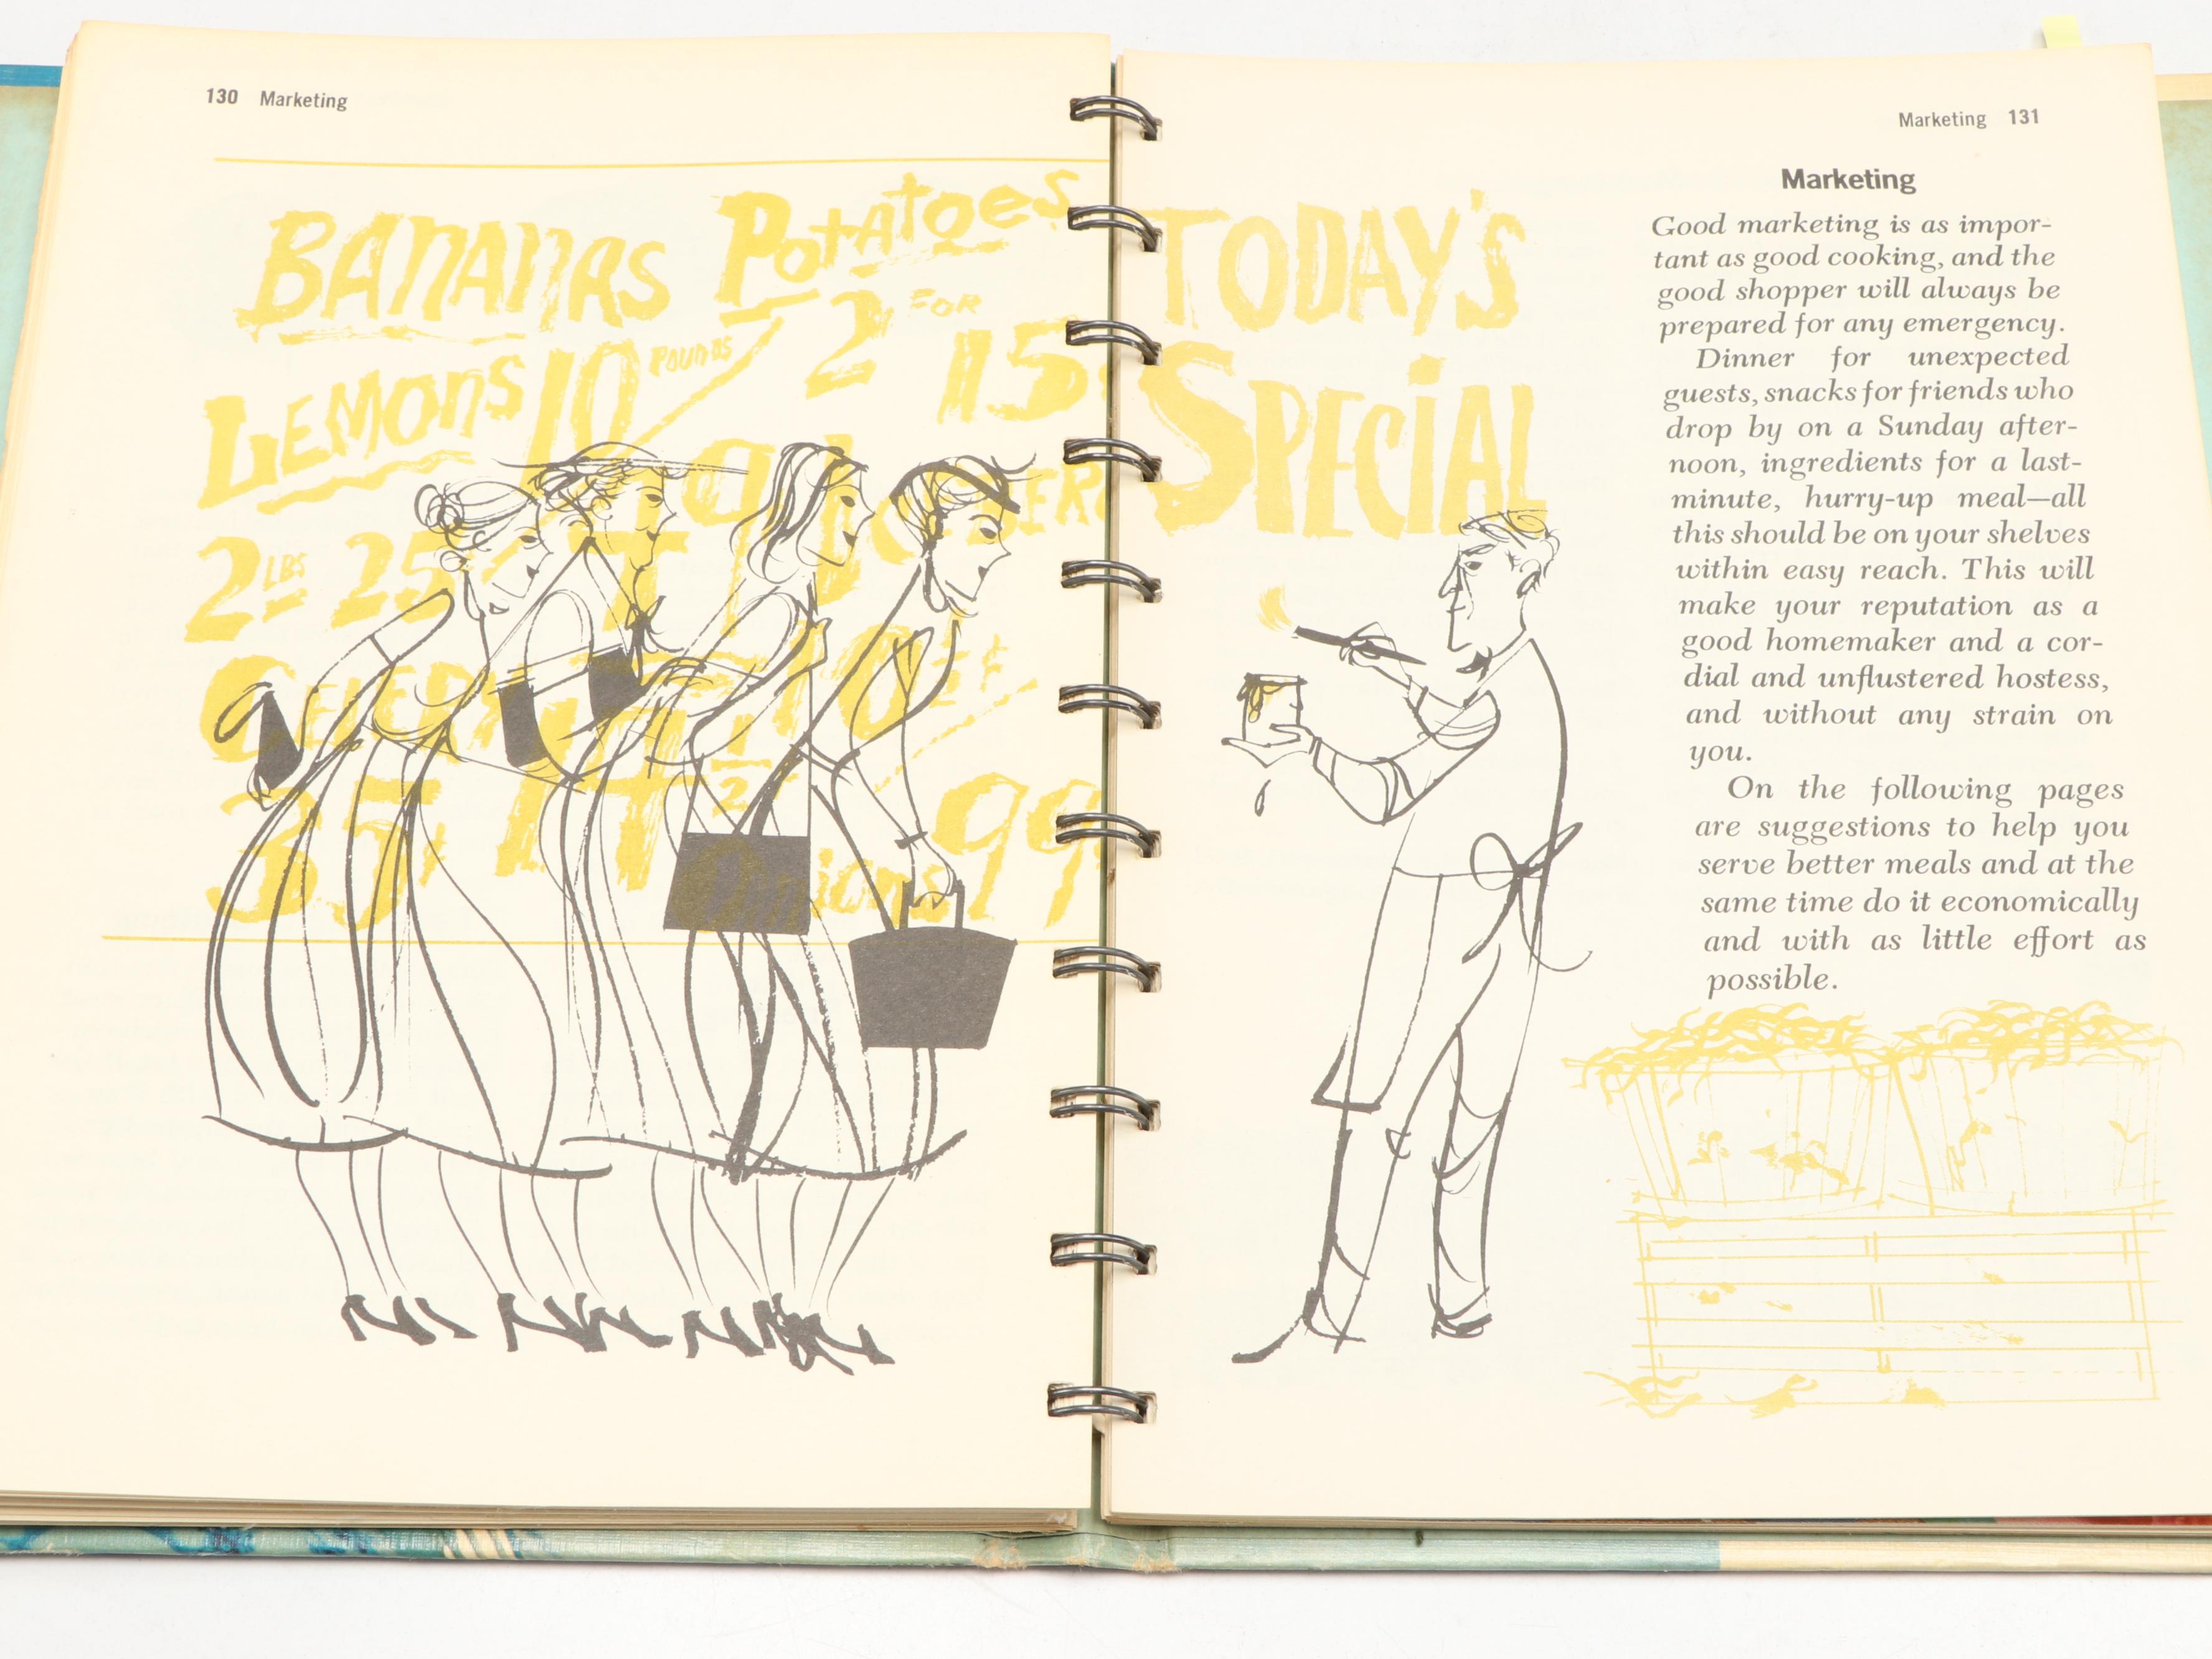 130 Marketing
BANANAS POTATOES
LEMONS 10 POUNDS 2 FOR 15
2 LBS 25
CELERY
35
14
10 ¢
Onions 99
Marketing 131
TODAY'S
SPECIAL
Marketing
Good marketing is as impor-
tant as good cooking, and the
good shopper will always be
prepared for any emergency.
Dinner for unexpected
guests, snacks for friends who
drop by on a Sunday after-
noon, ingredients for a last-
minute, hurry-up meal—all
this should be on your shelves
within easy reach. This will
make your reputation as a
good homemaker and a cor-
dial and unflustered hostess,
and without any strain on
you.
On the following pages
are suggestions to help you
serve better meals and at the
same time do it economically
and with as little effort as
possible.